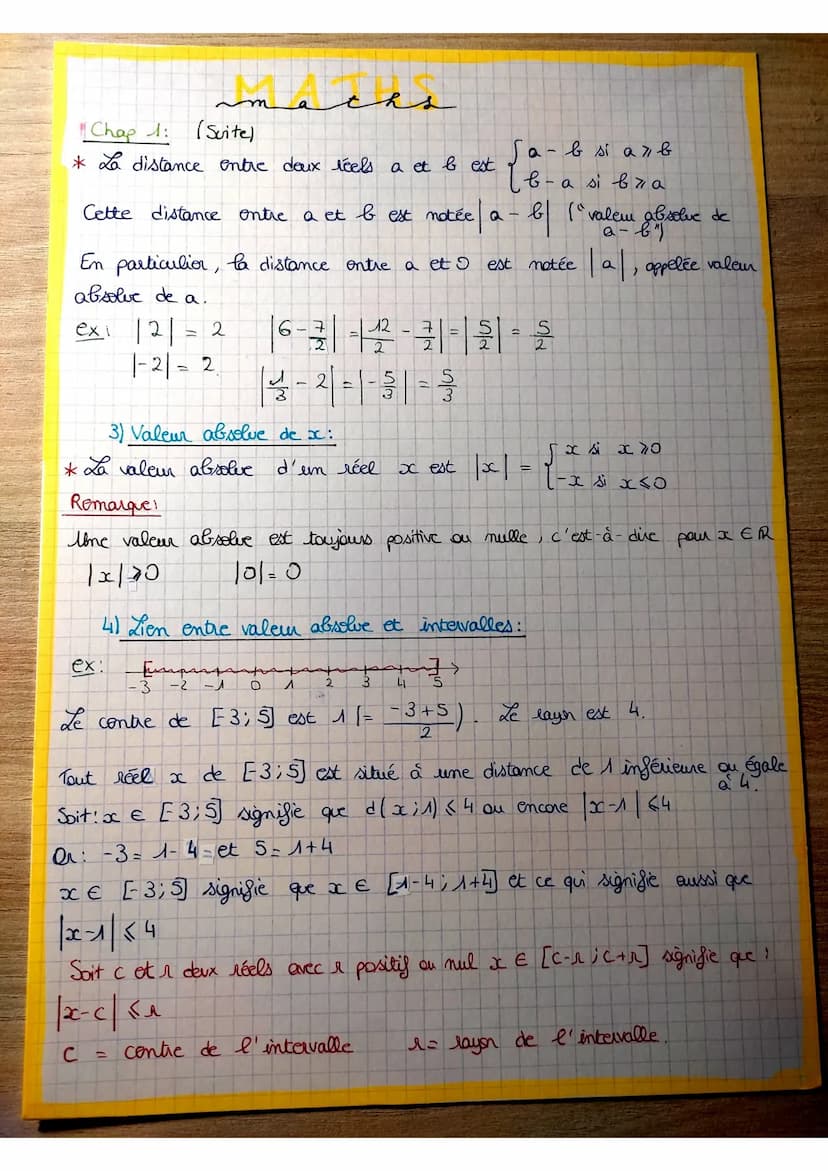 MATHS
maths
Chap 1: (Suite)
* La distance entre deux réels a et b est { a - b si a ⩾ b
b - a si b ⩾ a
Cette distance entre a et b est notée |a - b| ("valeur absolue de
a - b")
En particulier, la distance entre a et 0 est notée |a|, appelée valeur
absolue de a.
ex: |2| = 2 |6 - 7/2| = |12/2 - 7/2| = |5/2| = 5/2
|-2| = 2 |1/3 - 2| = |-5/3| = 5/3
3) Valeur absolue de x:
* La valeur absolue d'un réel x est |x| = { x si x ⩾ 0
-x si x ⩽ 0
Remarque:
Une valeur absolue est toujours positive ou nulle, c'est-à-dire pour x ∈ ℝ
|x| ⩾ 0 |0| = 0
4) Lien entre valeur absolue et intervalles:
ex: [ ]
-3 -2 -1 0 1 2 3 4 5
Le centre de [-3;5] est 1 (= -3+5/2). Le rayon est 4.
Tout réel x de [-3;5] est situé à une distance de 1 inférieure ou égale
à 4.
Soit: x ∈ [-3;5] signifie que d(x;1) ⩽ 4 ou encore |x-1| ⩽ 4
Or: -3 = 1-4 et 5 = 1+4
x ∈ [-3;5] signifie que x ∈ [1-4; 1+4] et ce qui signifie aussi que
|x-1| ⩽ 4
Soit c et r deux réels avec r positif ou nul x ∈ [c-r; c+r] signifie que:
|x-c| ⩽ r
c = centre de l'intervalle r = rayon de l'intervalle.